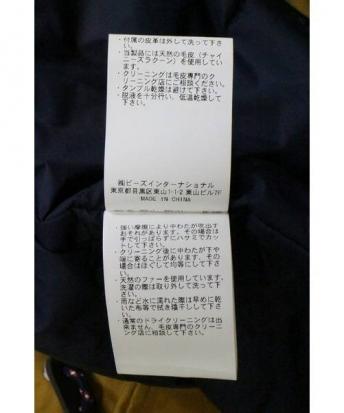 ・付属の皮革は外して洗って下さ
い。
・当製品には天然の毛皮（チャイ
ニーズラクーン）を使用してい
ます。
・クリーニングは毛皮専門のク
リーニング店にご相談ください。
・タンブル乾燥は避けて下さい。
・脱液を十分行い、低温乾燥して
下さい。
㈱ビーズインターナショナル
東京都目黒区東山1-1-2 東山ビル7F
MADE IN CHINA
・強い摩擦により中わたが吹出す
おそれがあります。その場合は
手で引っぱらずにハサミでカッ
トして下さい。
・クリーニング後に中わたが下や
端に寄ることがあります。その
場合はほぐして均等にして下さ
い。
・天然のファーを使用しています。
洗濯の際は取り外して洗って下
さい。
・雨など水に濡れた際は早めに乾
いた布等で拭き陰干しして下さ
い。
・通常のドライクリーニングは出
来ません。毛皮専門のクリーニ
ング店に相談して下さい。